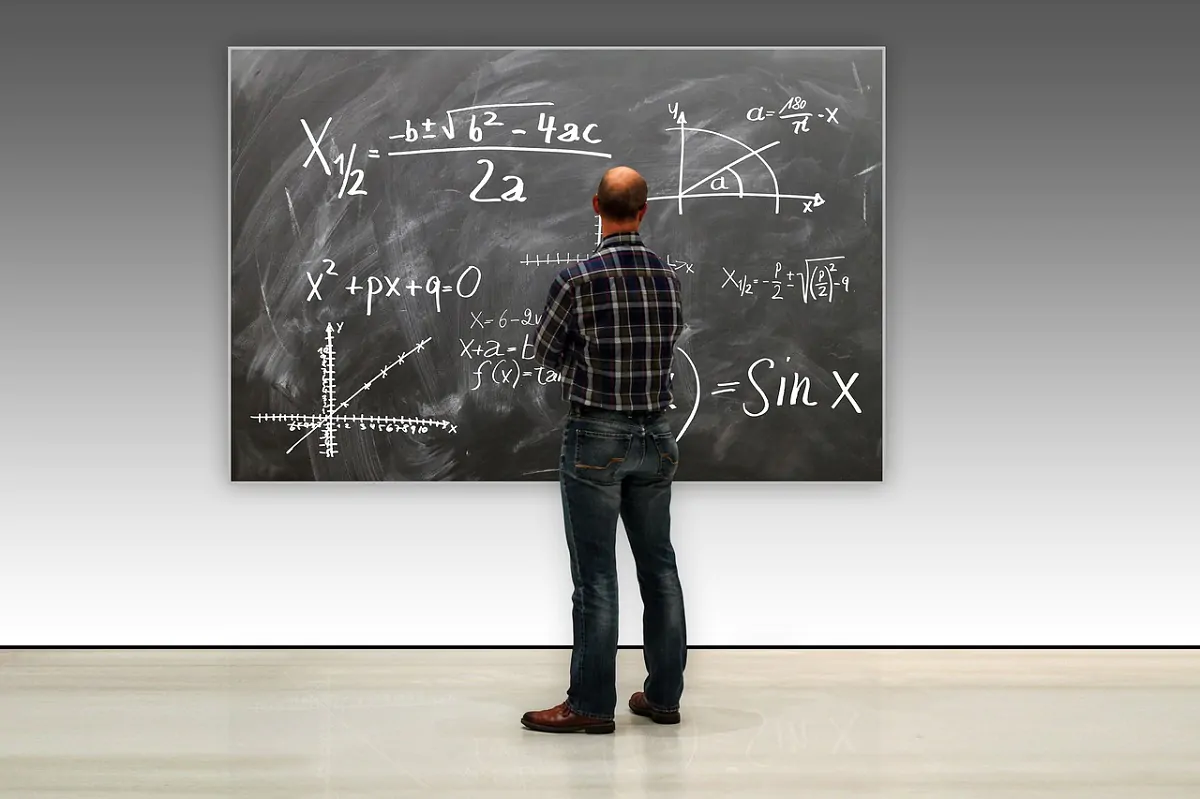 X₁/₂ = (-b ± √(b² - 4ac)) / 2a
y
a = 180/π · x
a
x
x
x² + px + q = 0
X₁/₂ = -p/2 ± √((p/2)² - q)
x = 6 - 2
x + a = b
f(x) =
) = Sin x
y
x